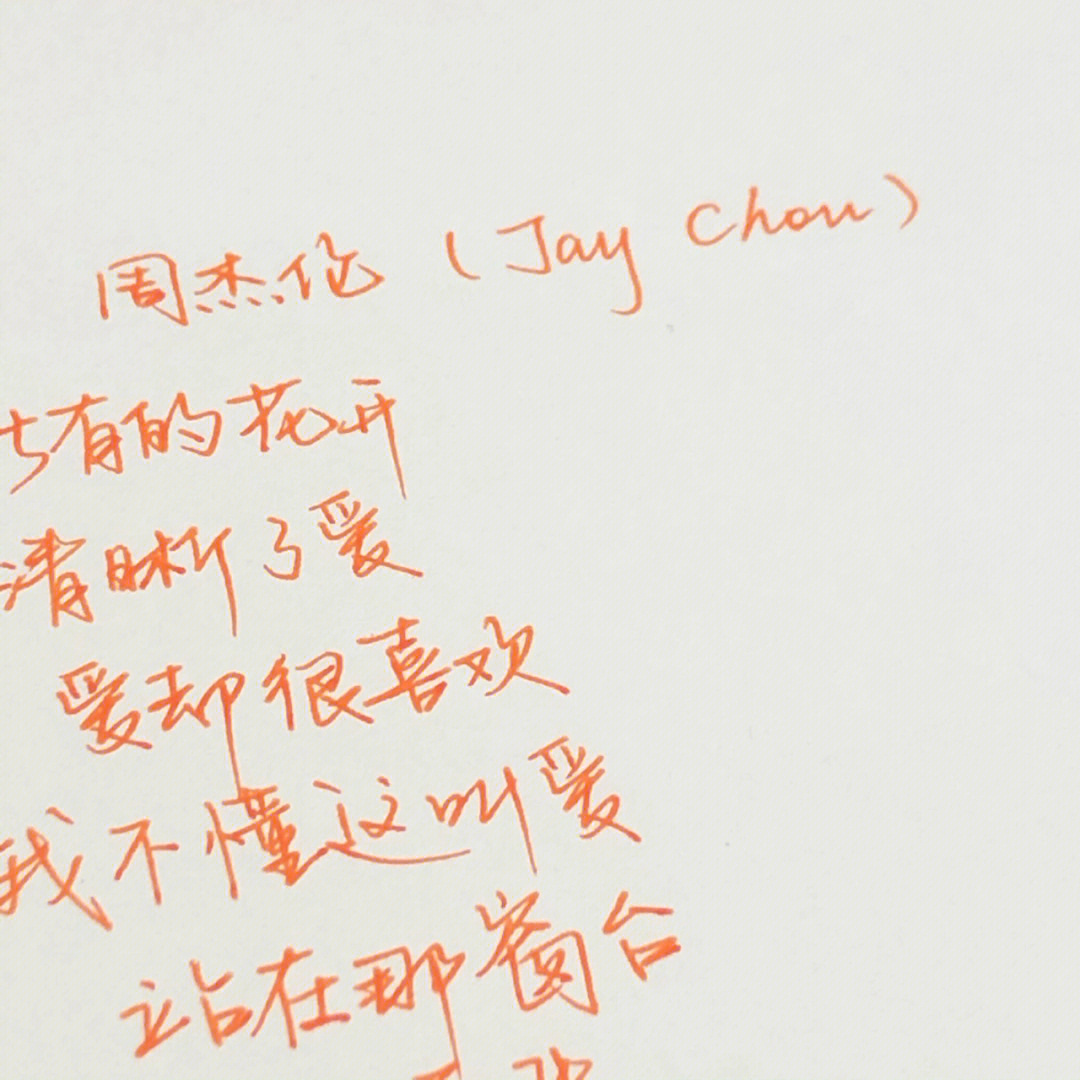 周杰伦 (Jay Chou)
有的花开
清晰了爱
爱却很喜欢
我不懂这叫爱
站在那窗台